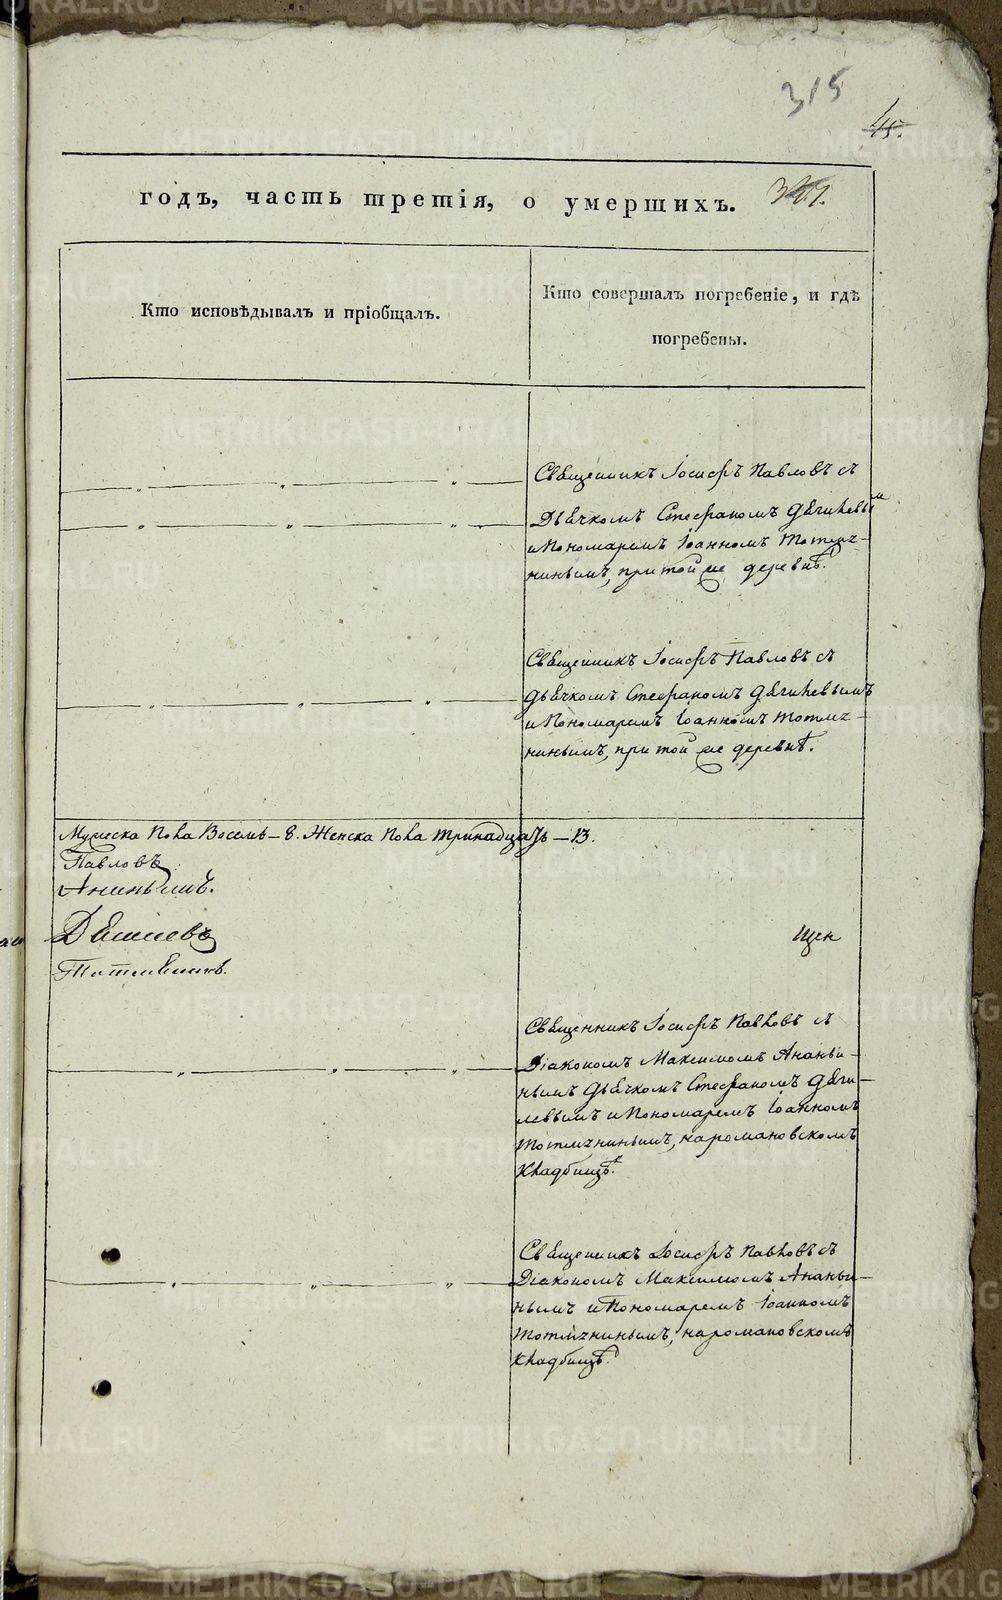 315
45.
годъ, часть третія, о умершихъ.
Кто исповѣдывалъ и пріобщалъ.
Кто совершалъ погребеніе, и гдѣ
погребены.
Священникъ Іосифъ Павловъ съ
Дьячкомъ Стефаномъ Дягилевым
и Пономаремъ Іоанномъ Тотмѣ-
нинымъ, при той же деревнѣ.
Священникъ Іосифъ Павловъ съ
Дьячкомъ Стефаномъ Дягилевымъ
и Пономаремъ Іоанномъ Тотмѣ-
нинымъ, при той же деревнѣ.
Мужеска пола Восемь – 8. Женска пола тринадцать – 13.
Павловъ
Ананьинъ.
щен
Священникъ Іосифъ Павловъ съ
Діакономъ Максимомъ Ананьи-
нымъ Дьячкомъ Стефаномъ Дяги-
левымъ и Пономаремъ Іоанномъ
Тотмѣнинымъ, на романовскомъ
кладбищѣ.
Священникъ Іосифъ Павловъ съ
Діакономъ Максимомъ Ананьи-
нымъ и Пономаремъ Іоанномъ
Тотмѣнинымъ, на романовскомъ
кладбищѣ.
METRIKI.GASO-URAL.RU